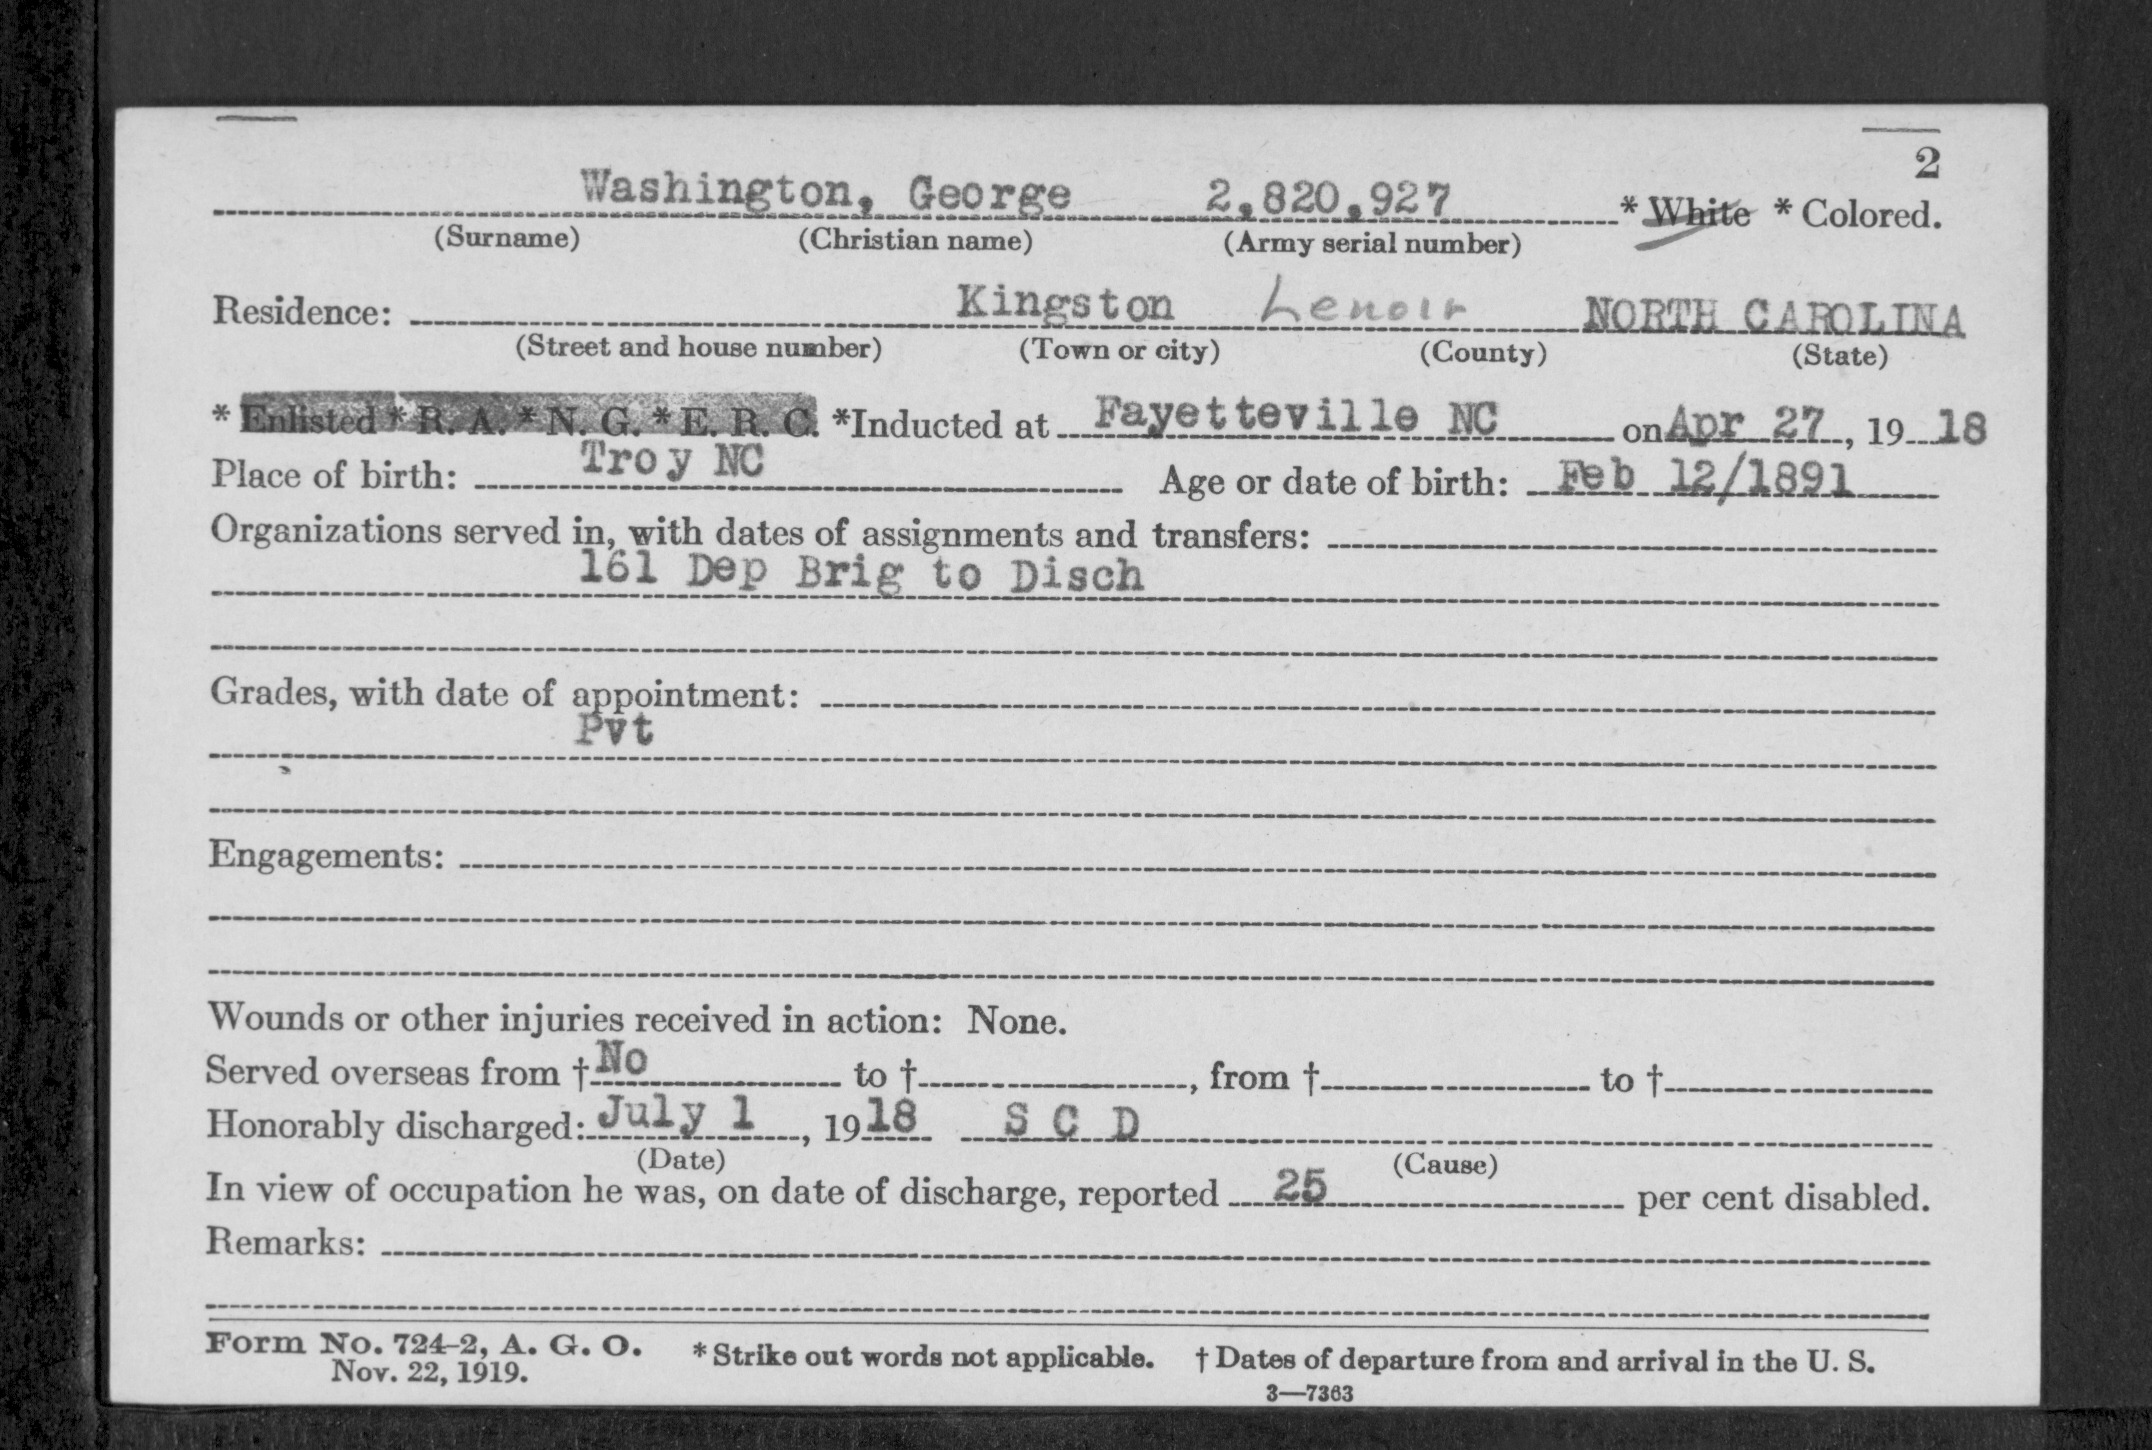 2
Washington, George 2,820,927 * White * Colored.
(Surname) (Christian name) (Army serial number)
Residence: Kingston Lenoir NORTH CAROLINA
(Street and house number) (Town or city) (County) (State)
* Enlisted * R. A. * N. G. * E. R. C. *Inducted at Fayetteville NC on Apr 27, 1918
Place of birth: Troy NC Age or date of birth: Feb 12/1891
Organizations served in, with dates of assignments and transfers:
161 Dep Brig to Disch
Grades, with date of appointment:
Pvt
Engagements:
Wounds or other injuries received in action: None.
Served overseas from † No to †, from † to †
Honorably discharged: July 1, 1918 S C D
(Date) (Cause)
In view of occupation he was, on date of discharge, reported 25 per cent disabled.
Remarks:
Form No. 724-2, A. G. O. * Strike out words not applicable. † Dates of departure from and arrival in the U. S.
Nov. 22, 1919.
3—7363